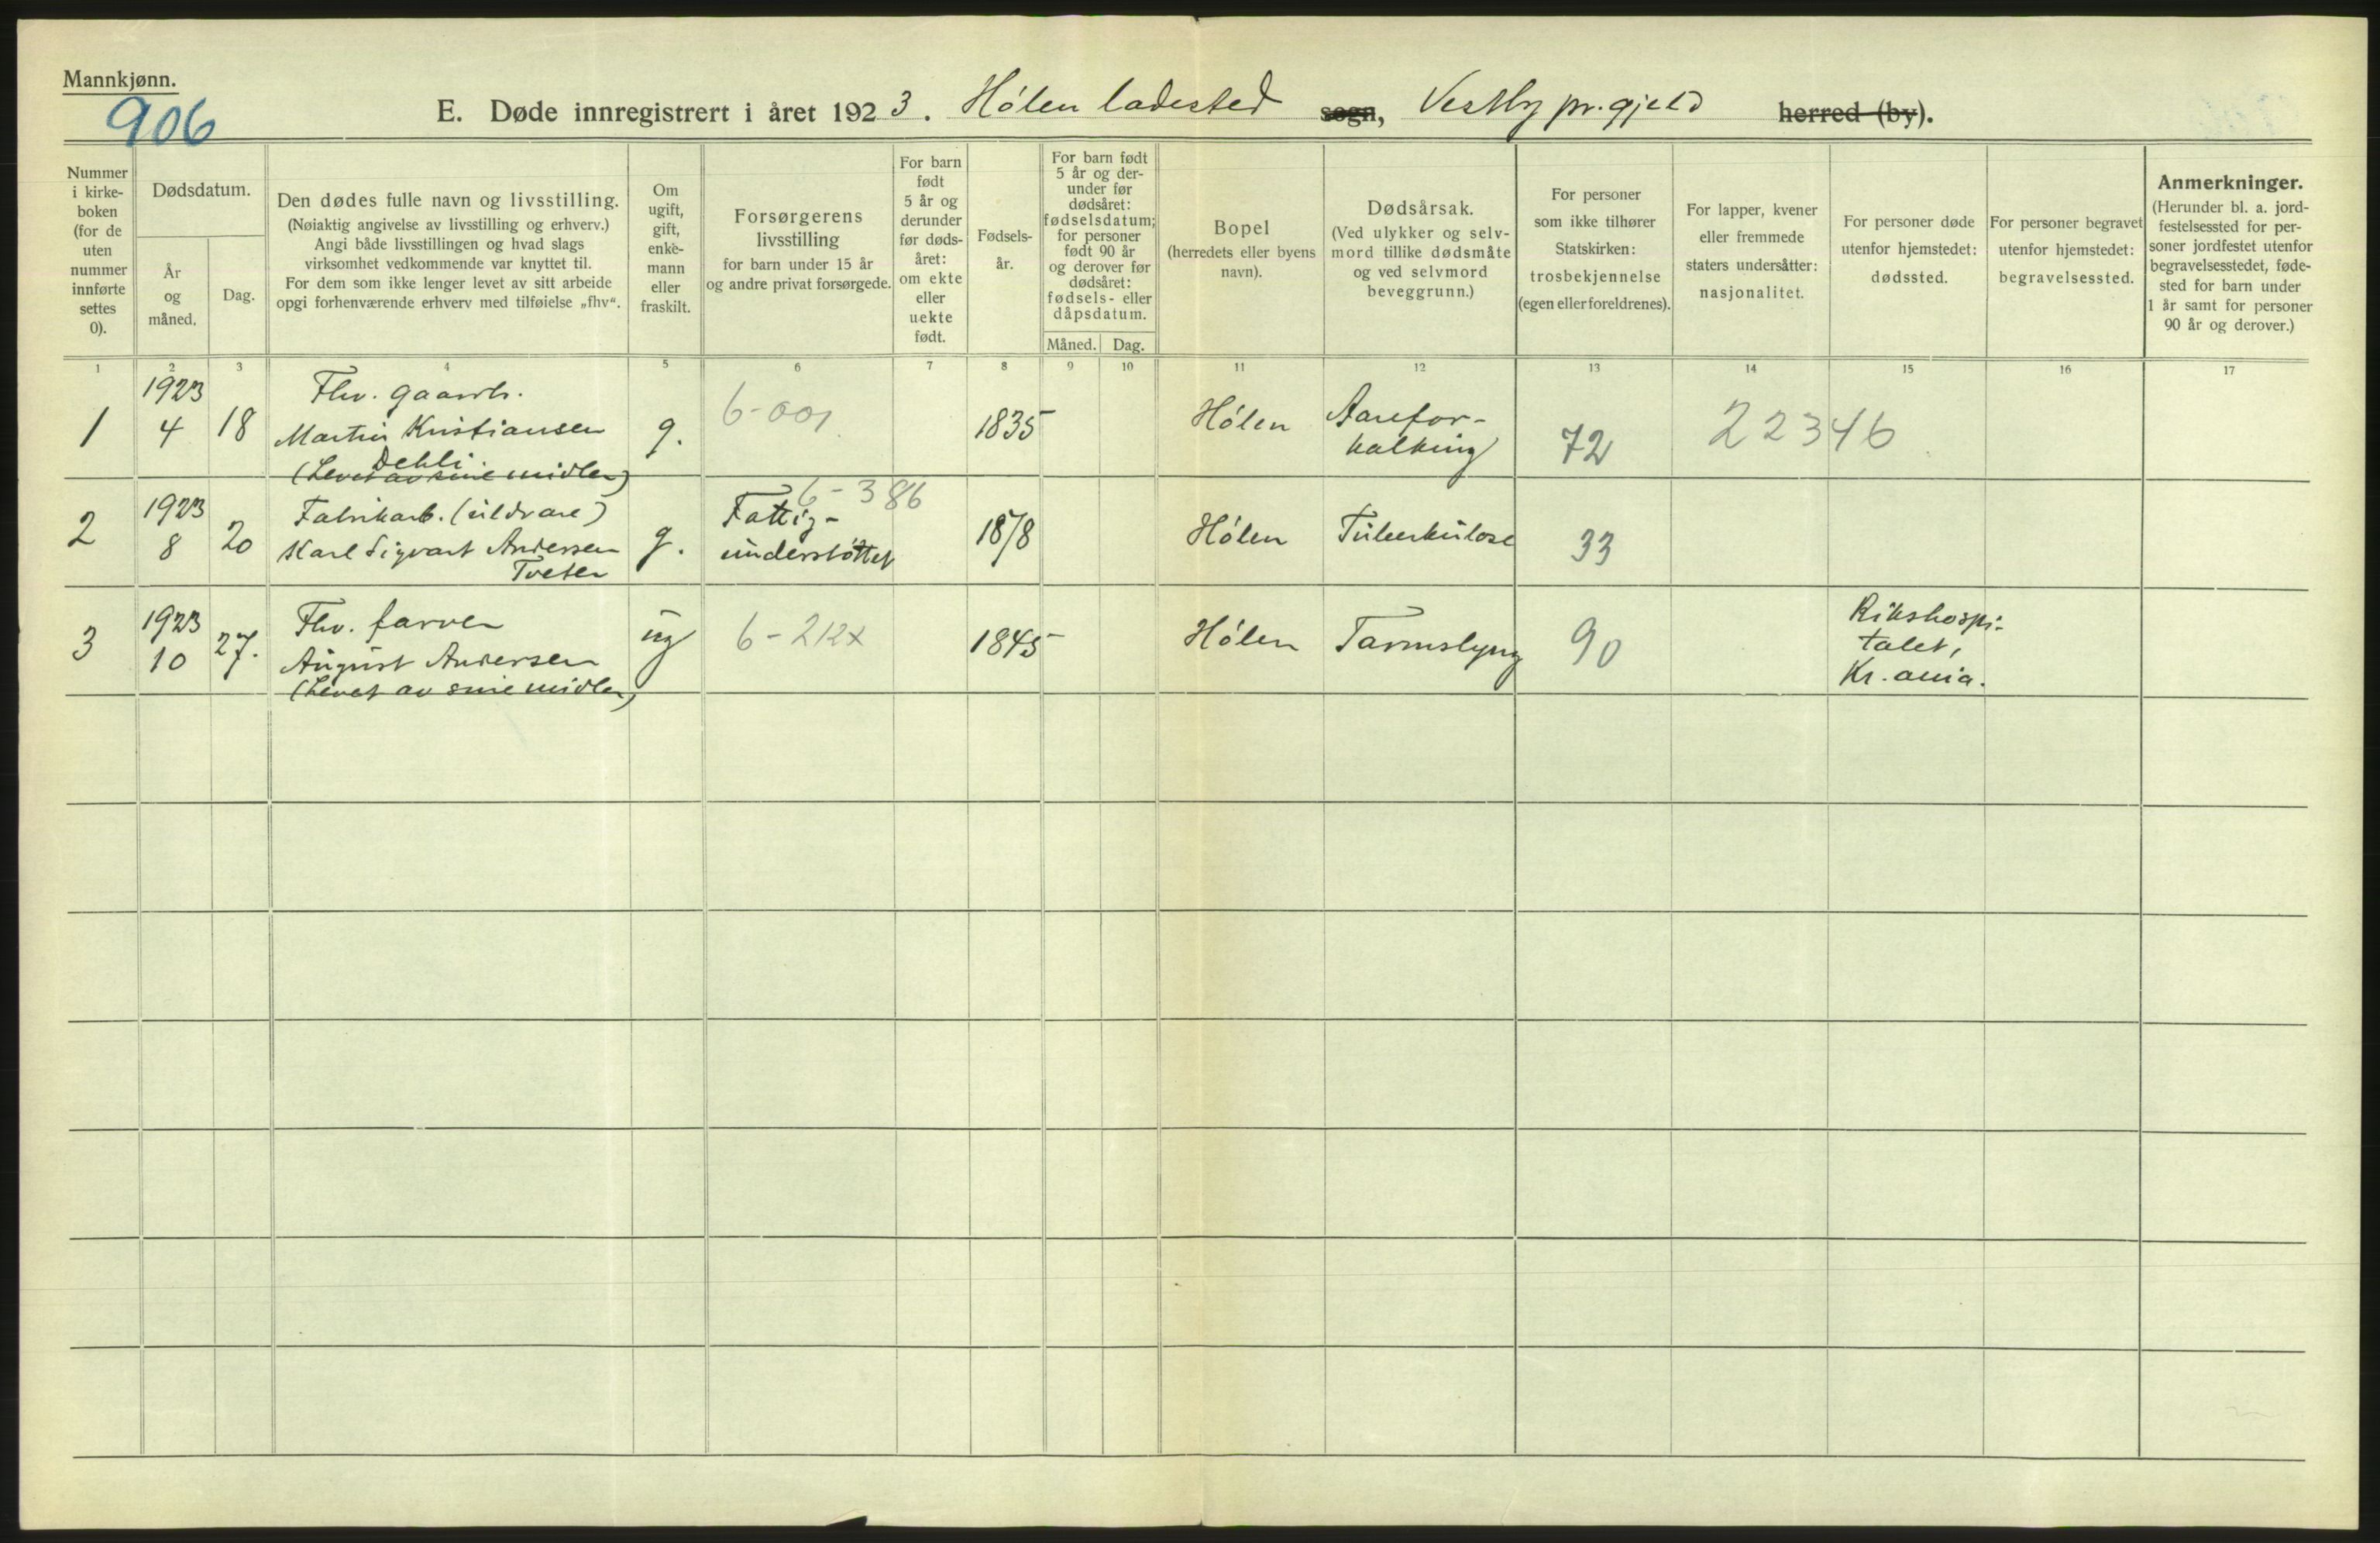 Mannkjønn.
906
E. Døde innregistrert i året 1923. Hólen ladested sogn, Vestby pr.gjeld herred (by).
Nummer i kirke-boken (for de uten nummer innførte settes 0).
Dødsdatum.
År og måned.
Dag.
Den dødes fulle navn og livsstilling.
(Nøiaktig angivelse av livsstilling og erhverv.)
Angi både livsstillingen og hvad slags
virksomhet vedkommende var knyttet til.
For dem som ikke lenger levet av sitt arbeide
opgi forhenværende erhverv med tilføielse „fhv“.
Om ugift, gift, enke-mann eller fraskilt.
Forsørgerens
livsstilling
for barn under 15 år
og andre privat forsørgede.
For barn født 5 år og derunder før døds-året: om ekte eller uekte født.
Fødsels-år.
For barn født 5 år og der-under før dødsåret: fødselsdatum; for personer født 90 år og derover før dødsåret: fødsels- eller dåpsdatum.
Måned.
Dag.
Bopel
(herredets eller byens
navn).
Dødsårsak.
(Ved ulykker og selv-
mord tillike dødsmåte
og ved selvmord
beveggrunn.)
For personer
som ikke tilhører
Statskirken:
trosbekjennelse
(egen eller foreldrenes).
For lapper, kvener
eller fremmede
staters undersåtter:
nasjonalitet.
For personer døde
utenfor hjemstedet:
dødssted.
For personer begravet
utenfor hjemstedet:
begravelsessted.
Anmerkninger.
(Herunder bl. a. jord-
festelsessted for per-
soner jordfestet utenfor
begravelsesstedet, føde-
sted for barn under
1 år samt for personer
90 år og derover.)
1 2 3 4 5 6 7 8 9 10 11 12 13 14 15 16 17
1
1923
4
18
Fhv. gaardbr.
Martin Kristiansen
Dehli
(Levet av sine midler)
g.
6-001
1835
Hólen
Aarefor-
kalkning
72
22346
2
1923
8
20
Fabrikarb. (uldvare)
Karl Sigvart Andersen
Tveter
g.
6-386
Fattig-
understóttet
1878
Hólen
Tuberkulose
33
3
1923
10
27.
Fhv. farver
August Andersen
(Levet av sine midler)
ug
6-212x
1845
Hólen
Tarmslyng
90
Rikshospi-
talet,
Kr.ania.